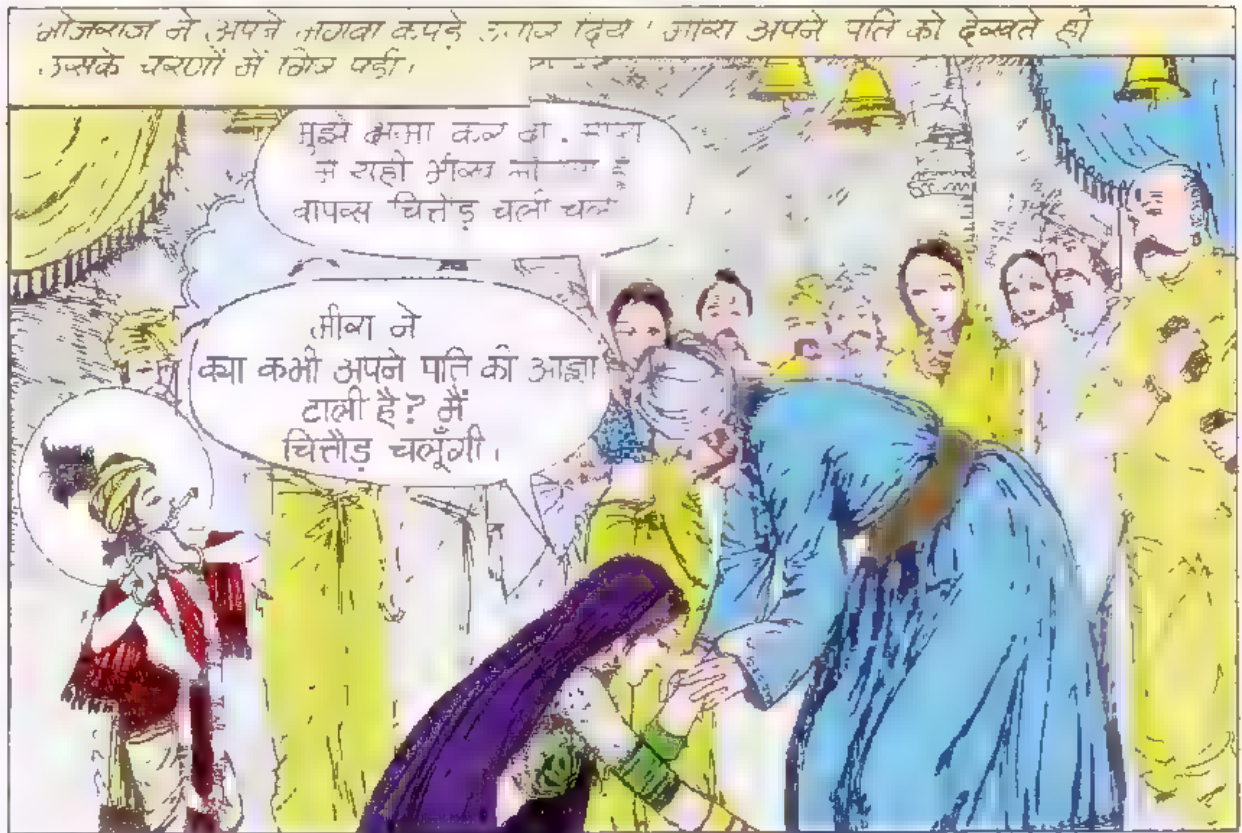 भोजराज ने अपने भगवा कपड़े उतार दिये। मीरा अपने पति को देखते ही
उसके चरणों में गिर पड़ी।
मुझे क्षमा कर दो, मीरा
मैं यही भीख
वापस चित्तौड़ चली चलो
मीरा ने
क्या कभी अपने पति की आज्ञा
टाली है? मैं
चित्तौड़ चलूँगी।